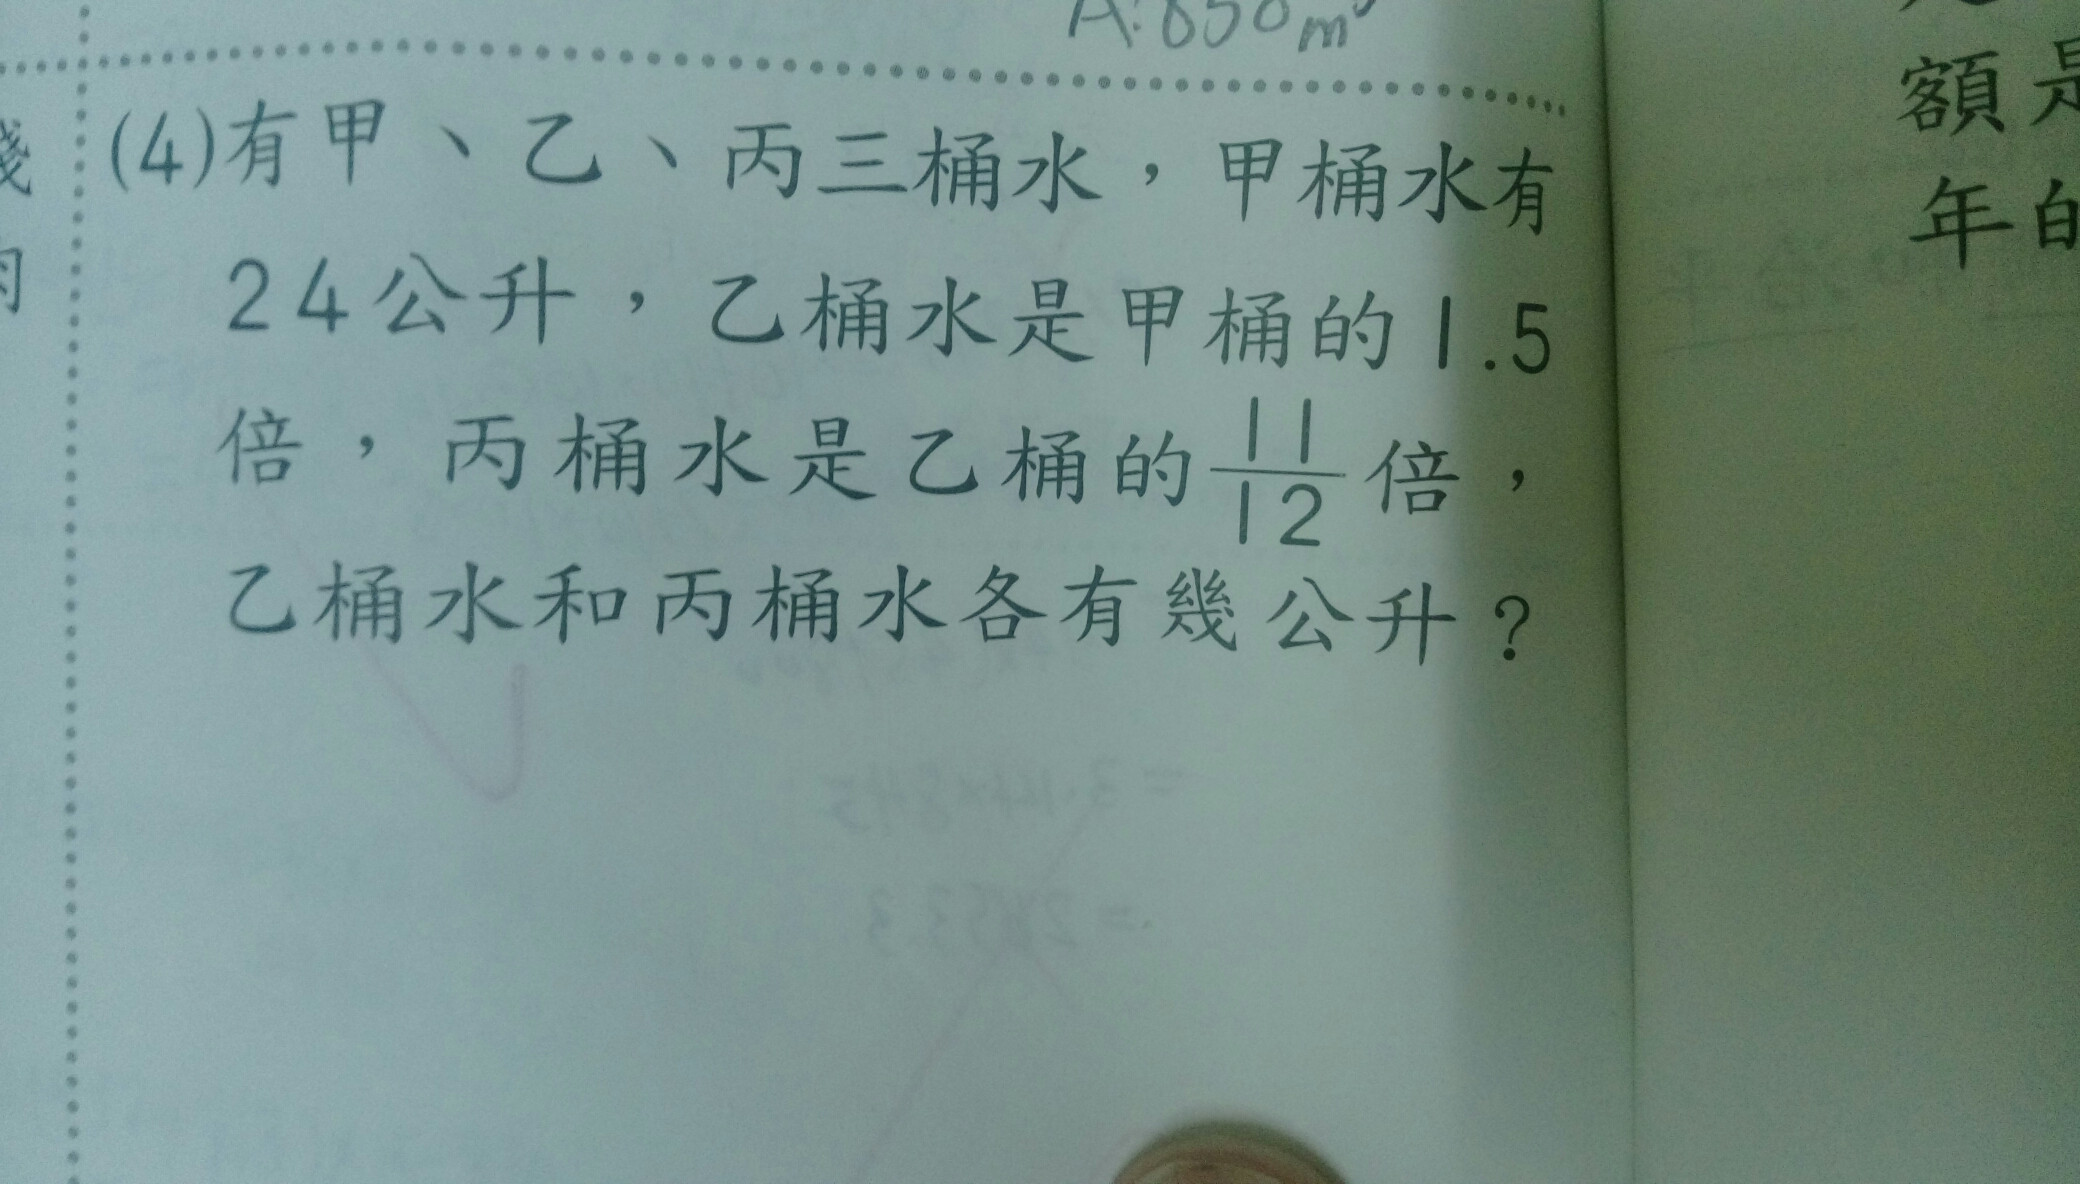 A:850m³
(4)有甲、乙、丙三桶水，甲桶水有
24公升，乙桶水是甲桶的1.5
倍，丙桶水是乙桶的11/12倍，
乙桶水和丙桶水各有幾公升？
額是
年的